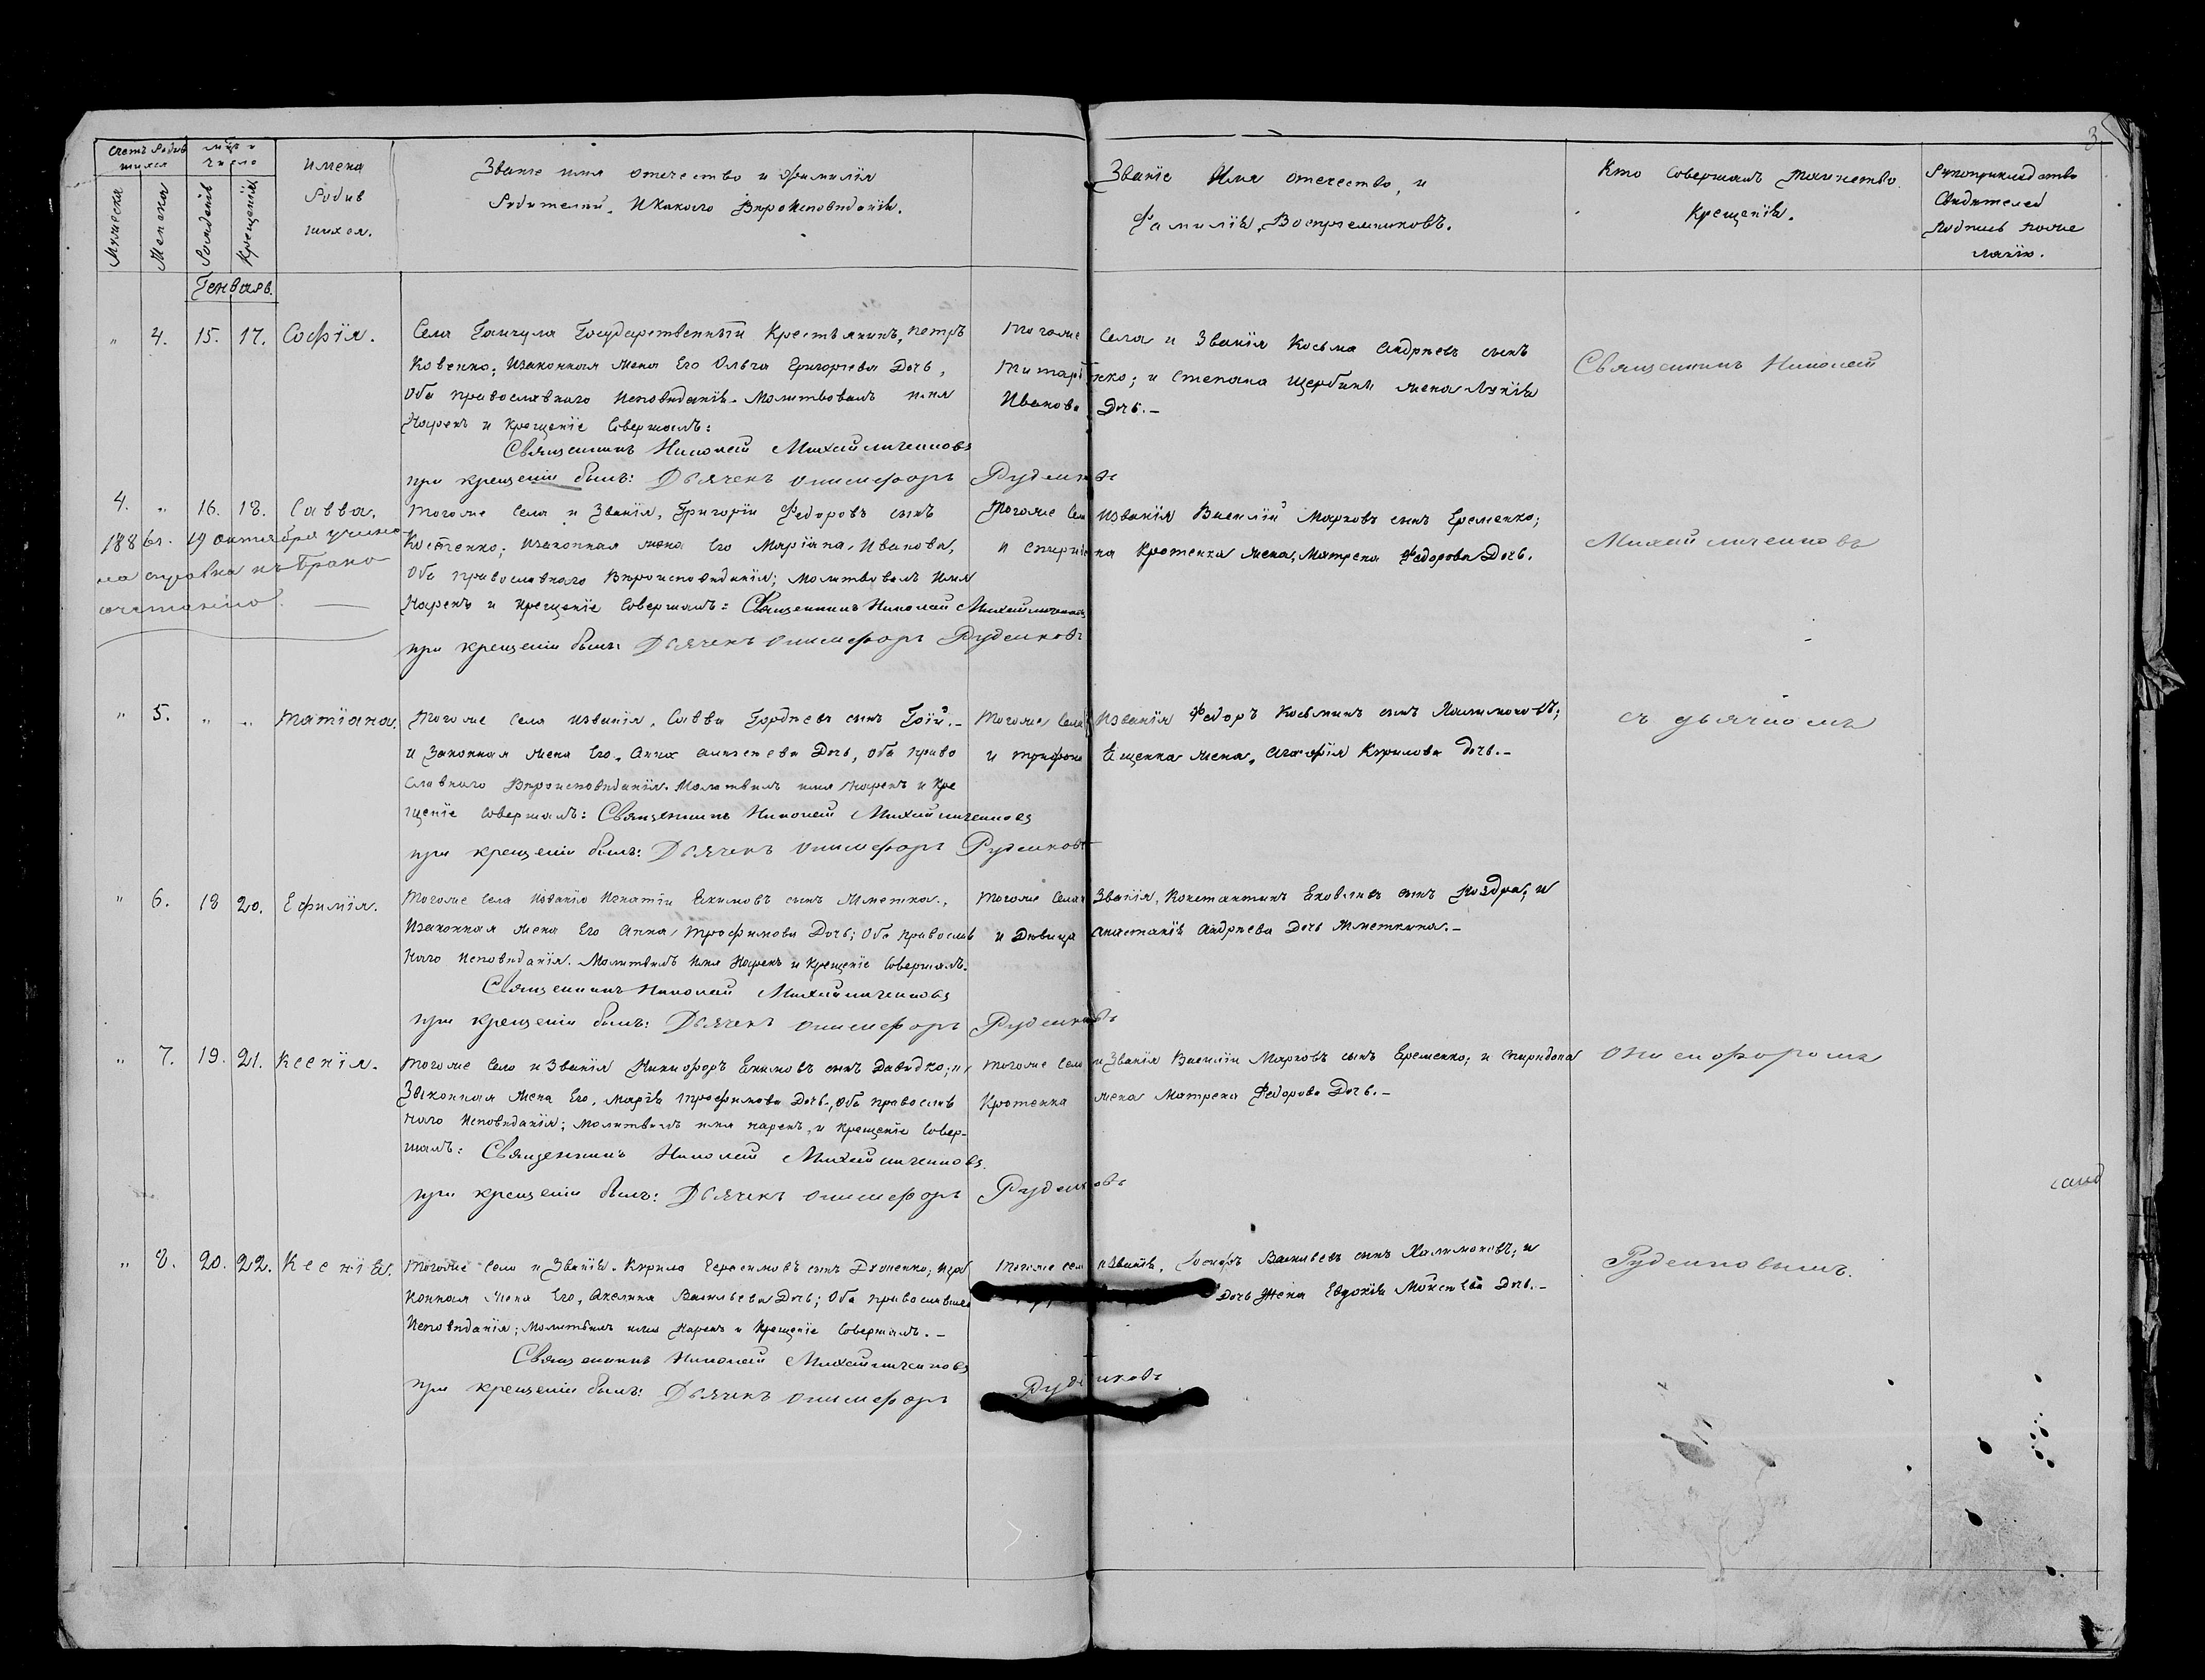 3
Счетъ Родив
шихся
Мужеска
Женска
мцъ и
число
Рожденія
Крещенія
имена
Родив
шихся.
Званіе имя отечество и фамилія
Родителей, Икакого Вѣроисповѣданія.
Званіе Имя отечество, и
Фамилія, Воспріемниковъ.
Кто Совершалъ Таинство
Крещенія.
Рукоприкладство
Свидѣтелей
Подписъ поже
ланію.
Генваря.
" 4. 15. 17. Софія.
Села Государственный Крестьянинъ, петръ
Ковенко; Изаконная жена Его Ольга Григоріева Дочь,
Оба православнаго Исповѣданія. Молитвовалъ имя
Нарекъ и Крещеніе Совершалъ:
Священникъ Николай Михайличенковъ
при крещеніи былъ: Дьячекъ Онисифоръ Руденковъ
Тогоже Села и Званія Косьма Андрѣевъ сынъ
Титаренко; и Степана Щербины жена
Иванова Дочь.-
Священникъ Николай
4. " 16. 18. Савва.
1886г. 19 октября учине
на справка къ Брако
сочетанію.
Тогоже Села и Званія, Григорій Федоровъ сынъ
Костенко; Изаконная жена Его Маріана, Иванова,
Оба православнаго Вѣроисповѣданія; Молитвовалъ Имя
Нарекъ и Крещеніе Совершалъ: Священникъ Николай Михайличенковъ
при крещеніи былъ: Дьячекъ Онисифоръ Руденковъ
Тогоже Села Извания Василій Марковъ сынъ Еременко;
и Кротенка жена, Матрена Федорова Дочь.
Михайличенковъ
" 5. " " Татіана.
Тогоже Села Изванія, Савва Гордѣевъ сынъ Гоій.-
и Законная жена Его, Анна Алексѣева Дочь, Оба право
славнаго Вѣроисповѣданія. Молитвилъ имя Нарекъ и Кре
щеніе Совершалъ: Священникъ Николай Михайличенковъ
при крещеніи былъ: Дьячекъ Онисифоръ Руденковъ
Тогоже Села Изванія Федоръ Косьминъ сынъ
и Трифона Ещенка жена, Агафія Кирилова Дочь.-
съ дьячкомъ
" 6. 18 20. Ефимія.
Тогоже Села Игнатій Екимовъ сынъ
Изаконная жена Его Анна, Трофимова Дочь; Оба православ
наго Исповѣданія. Молитвилъ Имя Нарекъ и Крещеніе Совершалъ.
Священникъ Николай Михайличенковъ
при крещеніи былъ: Дьячекъ Онисифоръ Руденковъ
Тогоже Села и Званія, Константинъ Яковлевъ сынъ Ноздра; и
и Дѣвица Анастасія Андрѣева Дочь
" 7. 19. 21. Ксенія.
Тогоже Села и Званія Никифоръ Екимовъ сынъ Давидко; и,
Законная жена Его, Марія Трофимова Дочь, Оба православ
наго Исповѣданія; Молитвилъ имя нарекъ, и Крещеніе Совер-
шалъ: Священникъ Николай Михайличенковъ.
при крещеніи былъ: Дьячекъ Онисифоръ Руденковъ
Тогоже Села и Званія Василій Марковъ сынъ Еременко; и Спиридона
Кротенка жена Матрена Федорова Дочь.-
Онисифоромъ
" 8. 20. 22. Ксенія.
Тогоже Села и Званія. Кирило Герасимовъ сынъ Иза
конная жена Его, Акелина Васильева Дочь; Оба православнаго
Исповѣданія; Молитвилъ имя Нарекъ и Крещеніе Совершалъ.-
Священникъ Николай Михайличенковъ
при крещеніи былъ: Дьячекъ Онисифоръ Руденковъ
Тогоже Села и Званія, Іосифъ Васильевъ сынъ и
Дочь Жена Евдокія Моисеева Дочь.-
Руденковымъ.